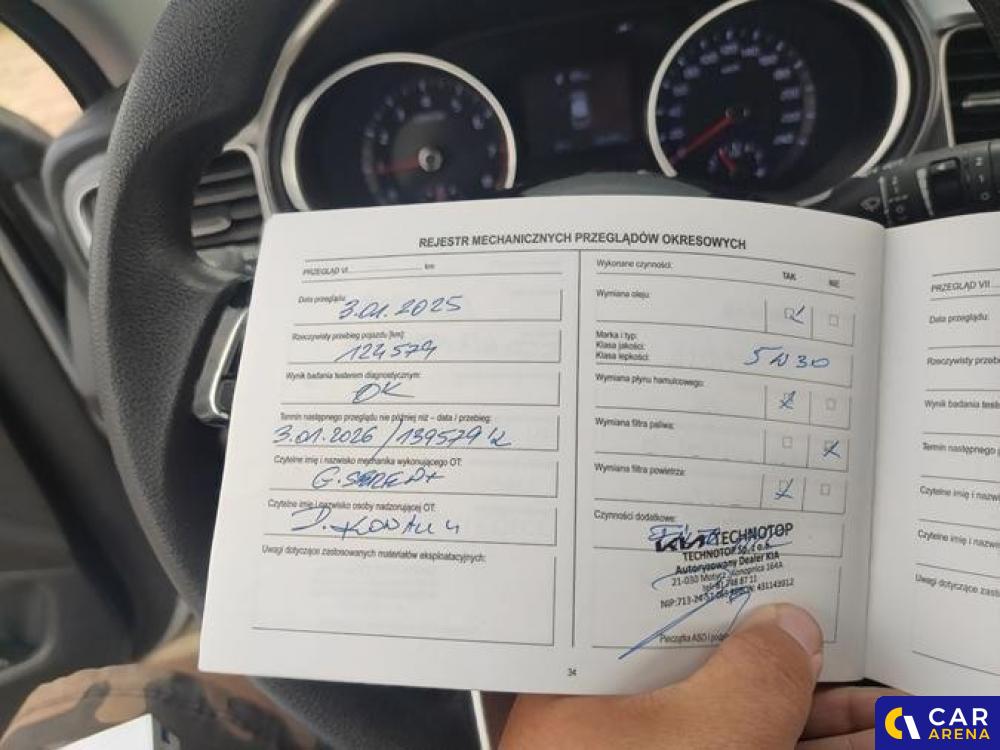 REJESTR MECHANICZNYCH PRZEGLĄDÓW OKRESOWYCH
PRZEGLĄD VI km
Data przeglądu:
3.01.2025
Rzeczywisty przebieg pojazdu [km]:
124579
Wynik badania testerem diagnostycznym:
OK
Termin następnego przeglądu nie później niż – data i przebieg:
3.01.2026 / 139579
Czytelne imię i nazwisko mechanika wykonującego OT:
G.
Czytelne imię i nazwisko osoby nadzorującej OT:
Uwagi dotyczące zastosowanych materiałów eksploatacyjnych:
Wykonane czynności:
TAK NIE
Wymiana oleju:
Marka i typ:
Klasa jakości:
Klasa lepkości:
5W30
Wymiana płynu hamulcowego:
Wymiana filtra paliwa:
Wymiana filtra powietrza:
Czynności dodatkowe:
KIA TECHNOTOP
TECHNOTOP Sp. z o.o.
Autoryzowany Dealer KIA
21-030 Motycz, Konopnica 164A
NIP:713-24 431143912
Pieczątka ASO i
34
PRZEGLĄD VII
Data przeglądu:
Rzeczywisty
Wynik badania
Termin następnego
Czytelne imię i
Czytelne imię i
Uwagi dotyczące
CAR
ARENA